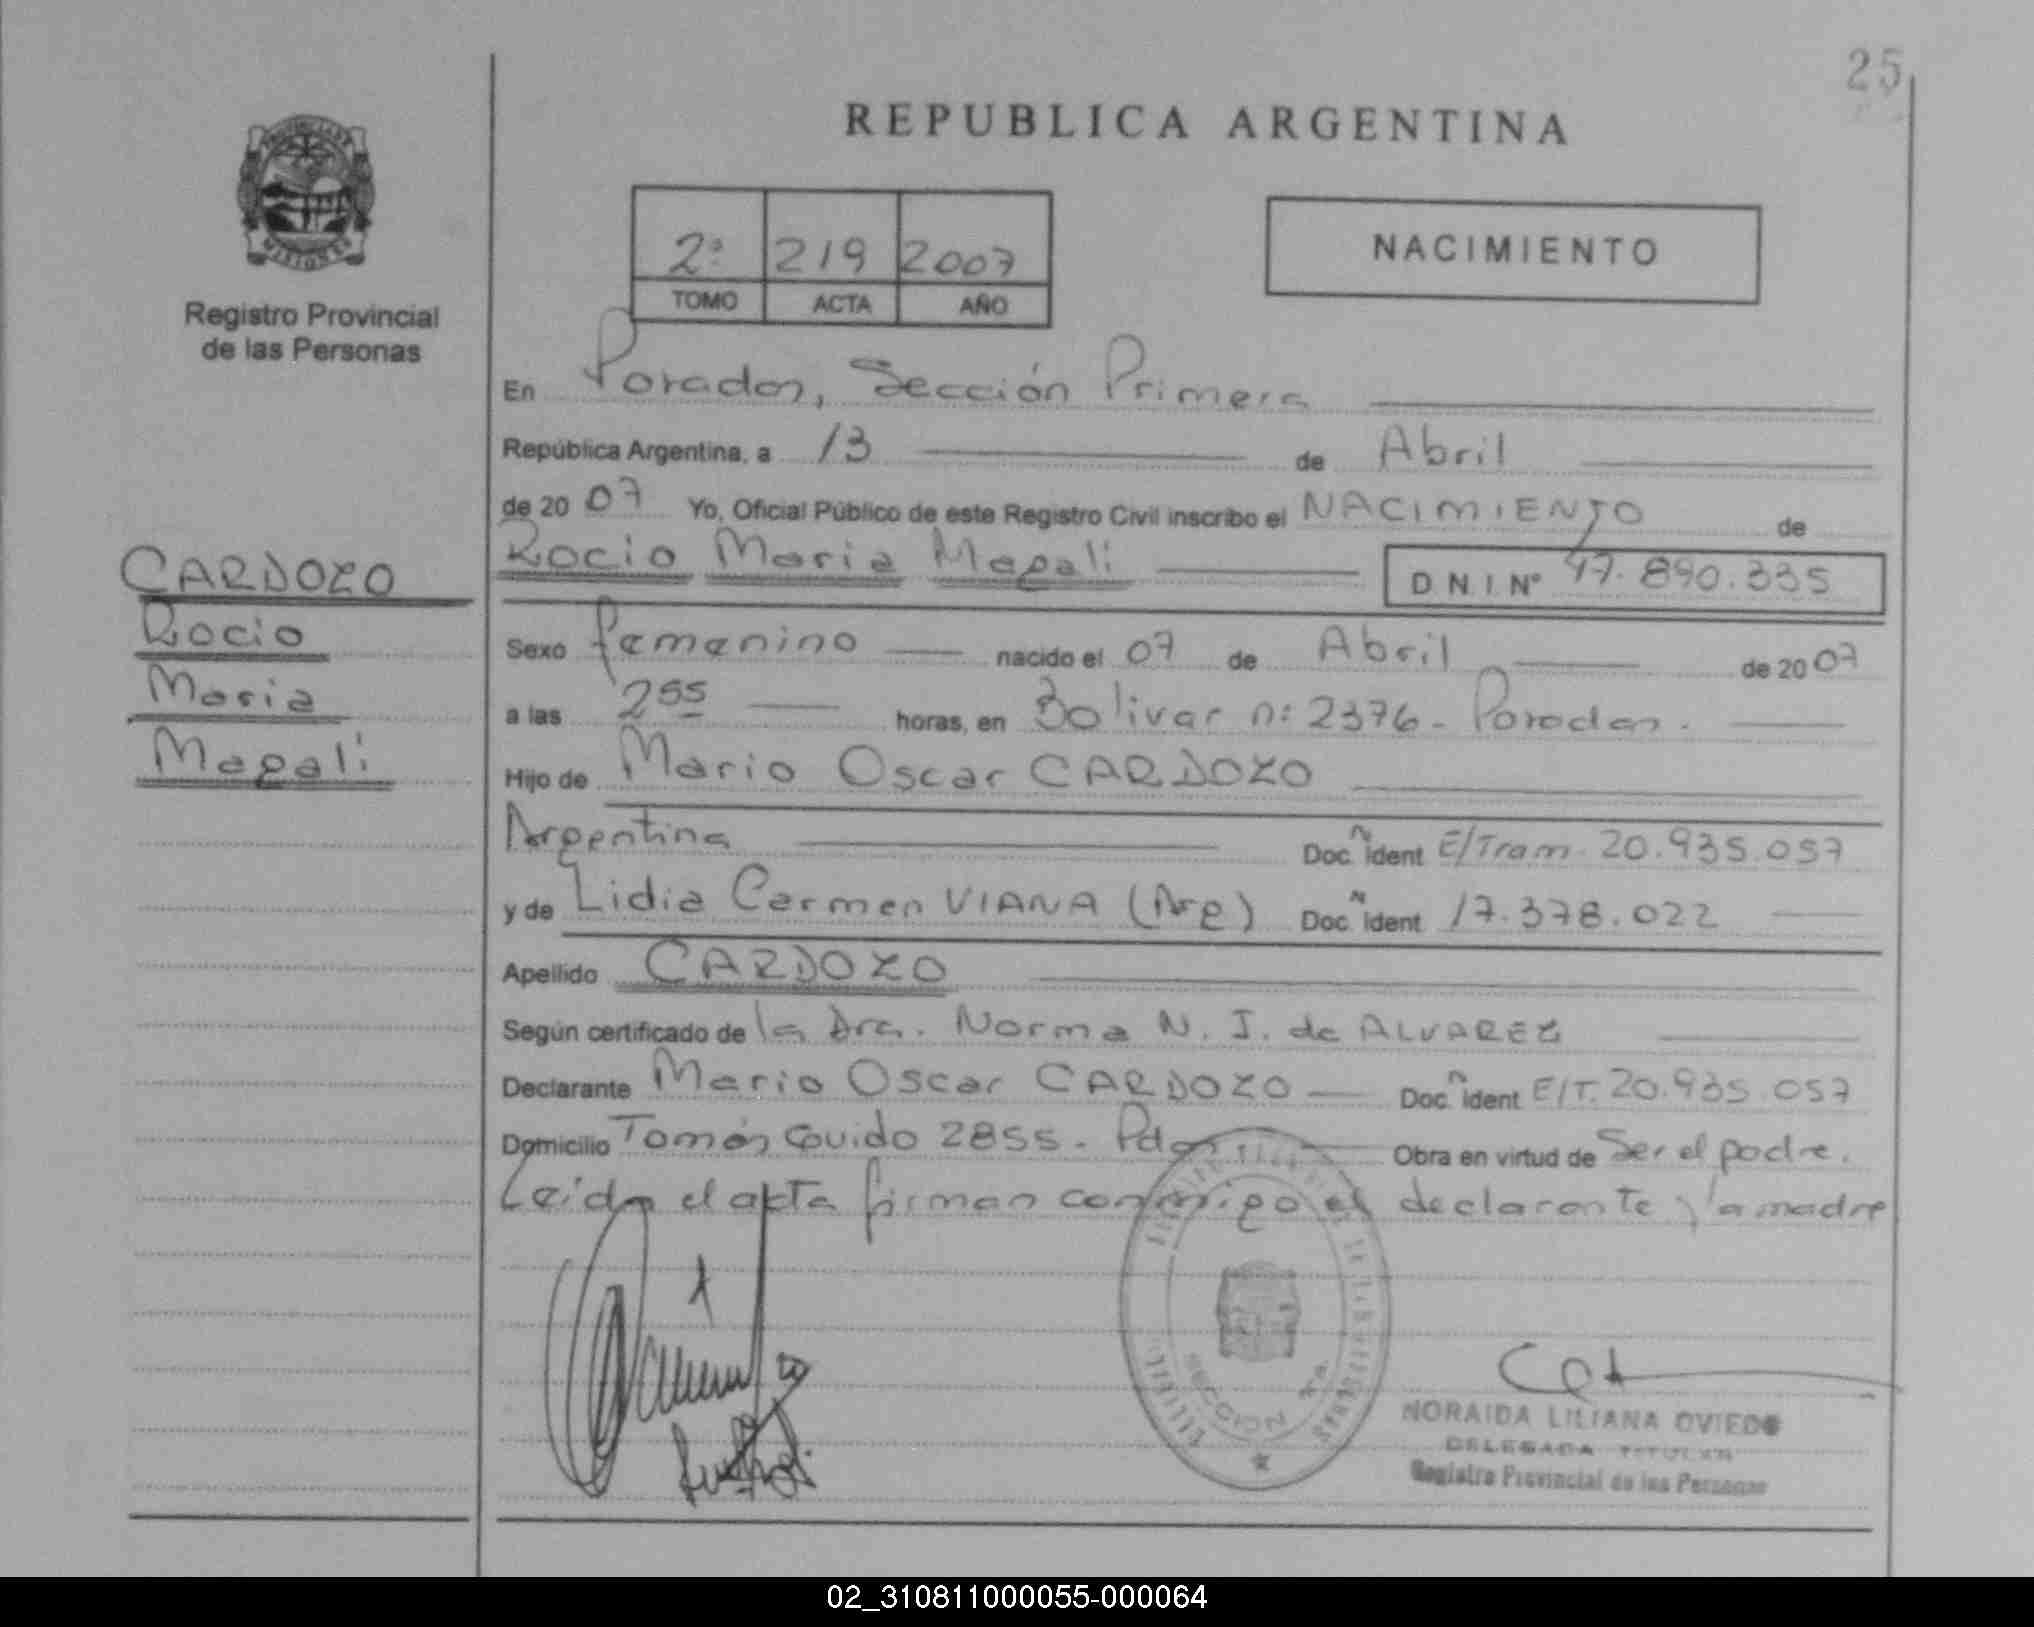 25
REPUBLICA ARGENTINA
PROVINCIA DE
MISIONES
Registro Provincial
de las Personas
2ª 219 2007
TOMO ACTA AÑO
NACIMIENTO
En Posadas, Sección Primera
República Argentina, a 13 de Abril
de 2007 Yo, Oficial Público de este Registro Civil inscribo el NACIMIENTO de
CARDOZO
Rocio
Maria
Magali
Rocio Maria Magali D.N.I. Nº 47.890.335
Sexo femenino nacido el 07 de Abril de 2007
a las 2 55 horas, en Bolivar nº 2376 - Posadas.
Hijo de Mario Oscar CARDOZO
Argentina Doc. Ident E/Tram. 20.935.057
y de Lidia Carmen VIANA (Arg) Doc. Ident 17.378.022
Apellido CARDOZO
Según certificado de la Dra. Norma N. I. de ALVAREZ
Declarante Mario Oscar CARDOZO Doc. Ident E/T. 20.935.057
Domicilio Tomás Guido 2855 - Pdas Obra en virtud de Ser el padre.
Leida el acta firman conmigo el declarante y la madre
SECCION 1ra.
NORAIDA LILIANA OVIEDO
DELEGADA TITULAR
Registro Provincial de las Personas
02_310811000055-000064